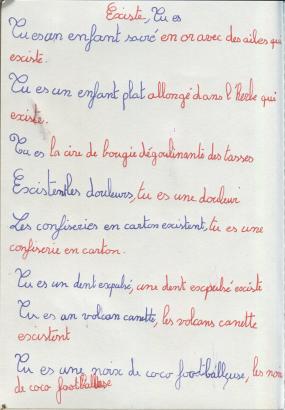 Existe, Tu es
Tu es un enfant sacré en or avec des ailes qui
existe.
Tu es un enfant plat allongé dans l'herbe qui
existe.
Tu es la cire de bougie dégoulinante des tasses
Existent les douleurs, tu es une douleur
Les confiseries en carton existent, tu es une
confiserie en carton.
Tu es un dent expulsé, une dent excpulsé existe
Tu es an volcan canette, les volcans canette
existent
Tu es une noix de coco footballeuse, les noix
de coco footballeuse